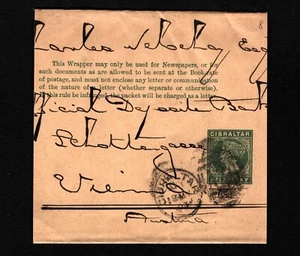 8
Charles
This Wrapper may only be used for Newspapers, or for
such documents as are allowed to be sent at the Book-rate
of postage, and must not enclose any letter or communication
of the nature of a letter (whether separate or otherwise).
If this rule be infringed, the packet will be charged as a letter.
Official Deposit Bank
Schottengasse
GIBRALTAR
Vienna
Austria